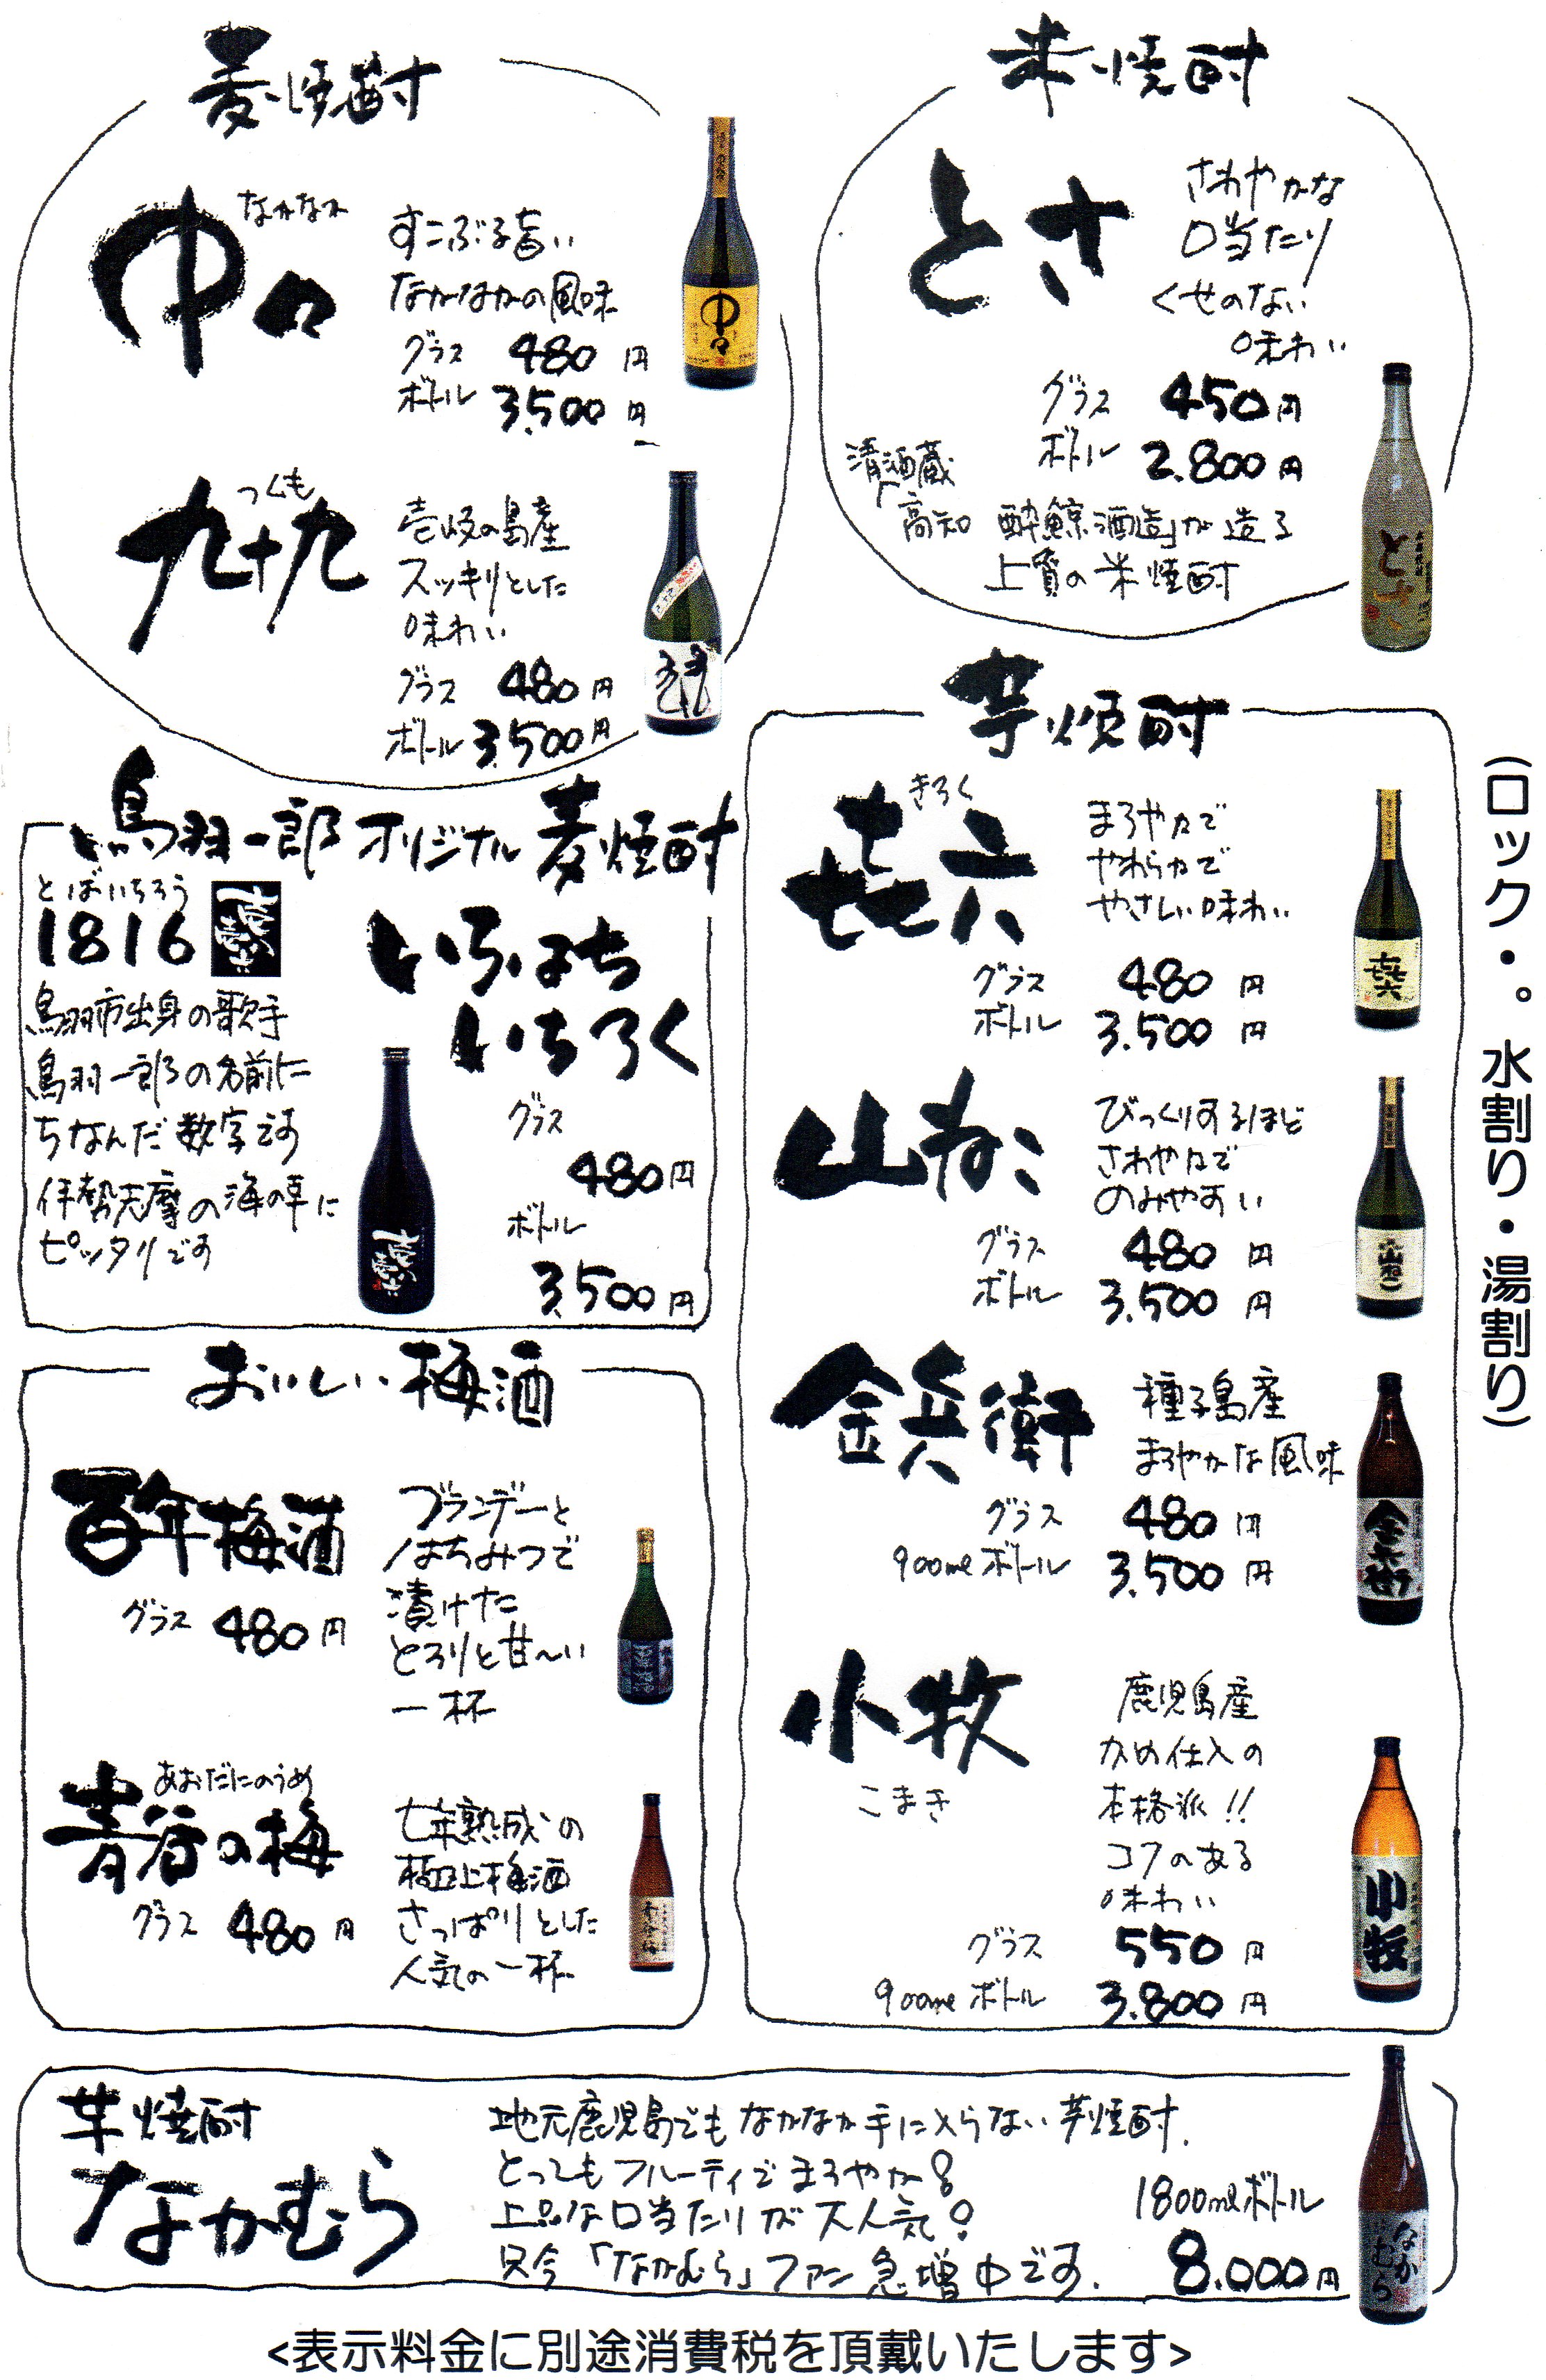 麦焼酎
中々
なかなか
すこぶる旨い
なかなかの風味
グラス 480円
ボトル 3,500円
九十九
つくも
壱岐の島産
スッキリとした
味わい
グラス 480円
ボトル 3,500円
米焼酎
とさ
さわやかな
口当たり
くせのない
味わい
グラス 450円
ボトル 2.800円
清酒蔵
「高知 酔鯨酒造」が造る
上質の米焼酎
鳥羽一郎オリジナル麦焼酎
とばいちろう
1816
いちはち
いちろく
鳥羽市出身の歌手
鳥羽一郎の名前に
ちなんだ数字です
伊勢志摩の海の幸に
ピッタリです
グラス
480円
ボトル
3,500円
おいしい梅酒
百年梅酒
グラス 480円
ブランデーと
はちみつで
漬けた
とろりと甘〜い
一杯
青谷の梅
あおだにのうめ
グラス 480円
七年熟成の
極上梅酒
さっぱりとした
人気の一杯
芋焼酎
㐂六
きろく
まろやかで
やわらかで
やさしい味わい
グラス 480円
ボトル 3.500円
山ねこ
びっくりするほど
さわやかで
のみやすい
グラス 480円
ボトル 3.500円
金兵衛
種子島産
まろやかな風味
グラス 480円
900mlボトル 3.500円
小牧
こまき
鹿児島産
かめ仕込の
本格派!!
コクのある
味わい
グラス 550円
900mlボトル 3.800円
(ロック・。水割り・湯割り)
芋焼酎
なかむら
地元鹿児島でもなかなか手に入らない芋焼酎.
とってもフルーティでまろやか!
上品な口当たりが大人気!
只今「なかむら」ファン急増中です.
1800mlボトル
8.000円
<表示料金に別途消費税を頂戴いたします>